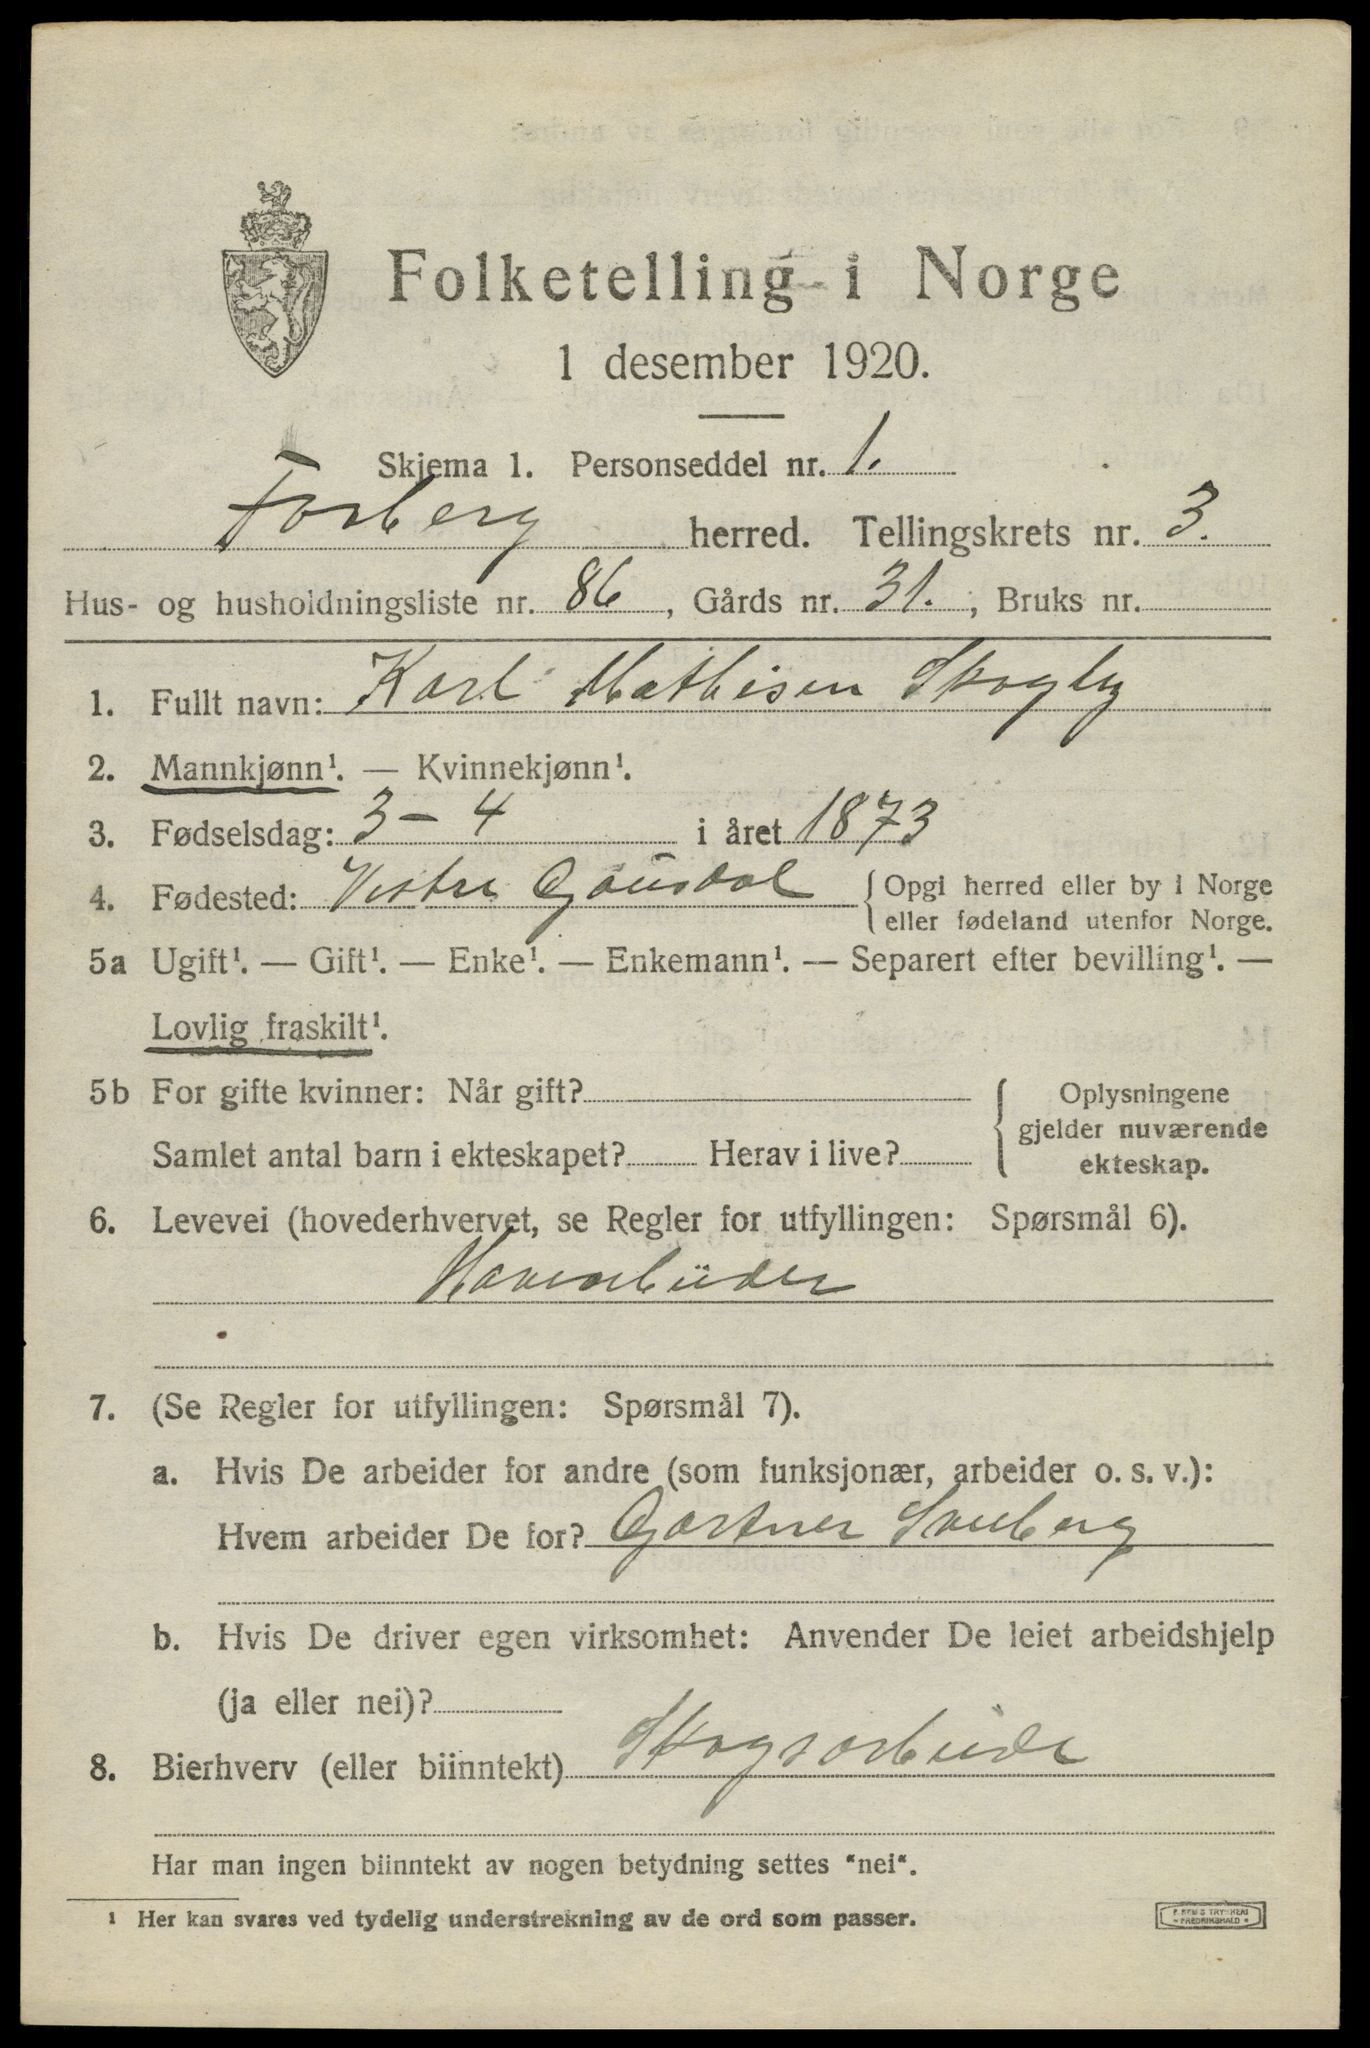 Folketelling i Norge
1 desember 1920.
Skjema 1. Personseddel nr. 1.
Forberg herred. Tellingskrets nr. 3.
Hus- og husholdningsliste nr. 86, Gårds nr. 31., Bruks nr.
1. Fullt navn: Karl Mathisen Skogly
2. Mannkjønn¹. — Kvinnekjønn¹.
3. Fødselsdag: 3 – 4 i året 1873
4. Fødested: Vestre Gausdal { Opgi herred eller by i Norge
eller fødeland utenfor Norge.
5a Ugift¹. — Gift¹. — Enke¹. — Enkemann¹. — Separert efter bevilling¹. —
Lovlig fraskilt¹.
5b For gifte kvinner: Når gift?
Samlet antal barn i ekteskapet? Herav i live?
{ Oplysningene
gjelder nuværende
ekteskap.
6. Levevei (hovederhvervet, se Regler for utfyllingen: Spørsmål 6).
Havearbeider
7. (Se Regler for utfyllingen: Spørsmål 7).
a. Hvis De arbeider for andre (som funksjonær, arbeider o. s. v.):
Hvem arbeider De for? Gartner
b. Hvis De driver egen virksomhet: Anvender De leiet arbeidshjelp
(ja eller nei)?
8. Bierhverv (eller biinntekt) Skogsarbeide
Har man ingen biinntekt av nogen betydning settes "nei".
¹ Her kan svares ved tydelig understrekning av de ord som passer.
FREDRIKSHALD